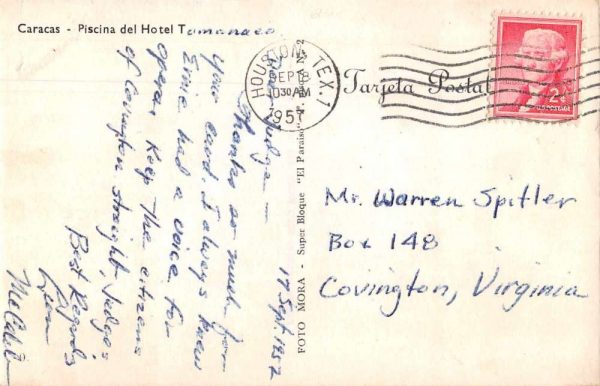 Caracas - Piscina del Hotel Tamanaco
HOUSTON, TEX. 1
SEP 18
1030 AM
1957
2¢
Tarjeta Postal
FOTO MORA - Super Bloque "El Paraiso"
17 Sept. 1957
Dear Judge —
Thanks so much for
your card I always knew
Ernie had a voice for
opera. Keep the citizens
of Covington straight, Judge.
Best Regards
McCaleb
Mr. Warren Spitler
Box 148
Covington, Virginia